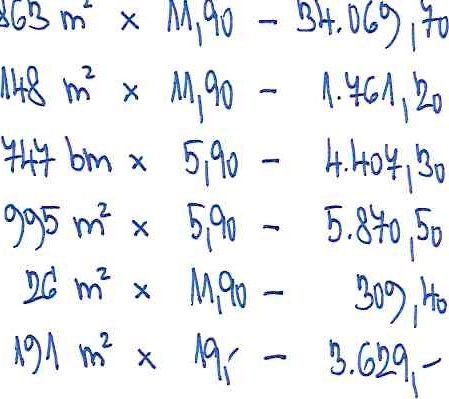 863 m² × 11,90 - 34.069,70
148 m² × 11,90 - 1.761,20
747 bm × 5,90 - 4.407,30
995 m² × 5,90 - 5.870,50
26 m² × 11,90 - 309,40
191 m² × 19,- - 3.629,-